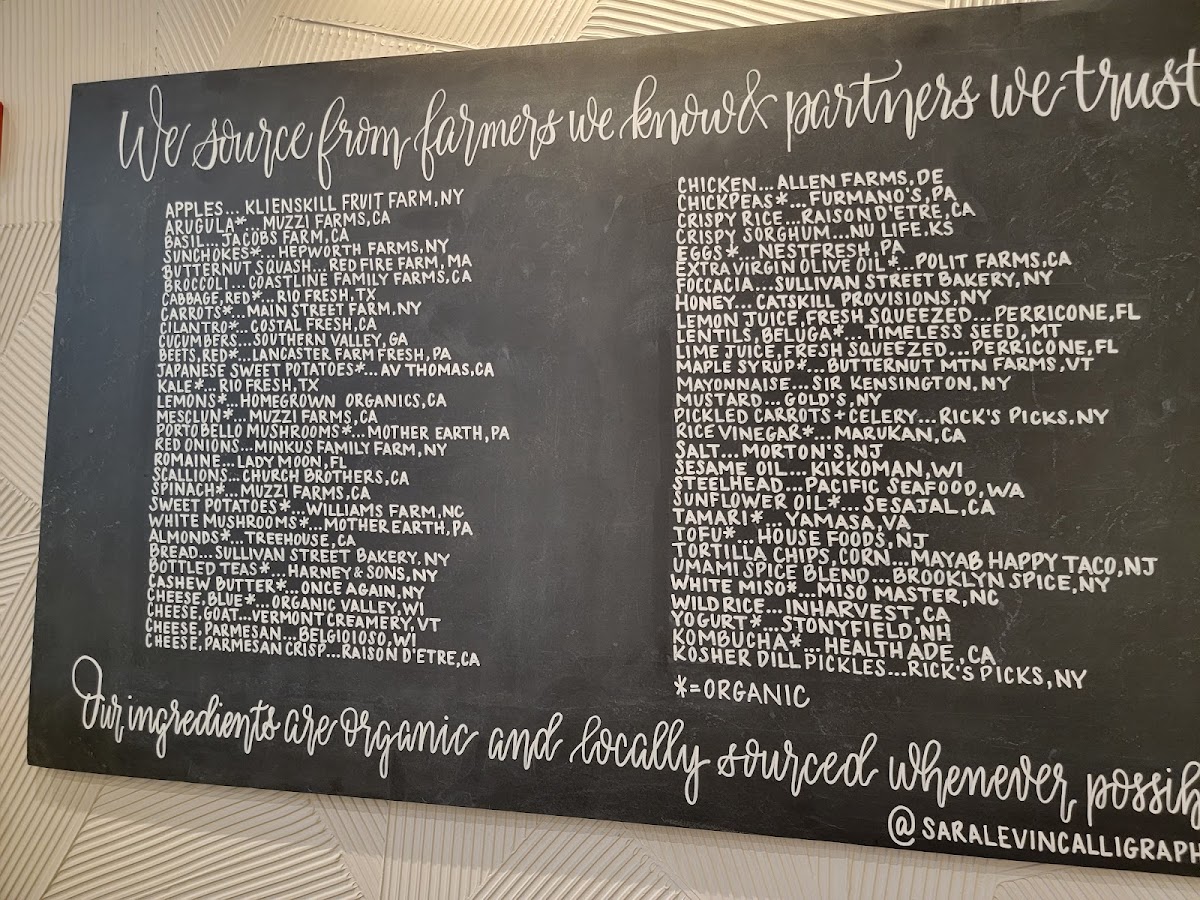 We source from farmers we know & partners we trust
APPLES... KLIENSKILL FRUIT FARM, NY
ARUGULA*...MUZZI FARMS, CA
BASIL...JACOBS FARM, CA
SUNCHOKES*...HEPWORTH FARMS, NY
BUTTERNUT SQUASH...RED FIRE FARM, MA
BROCCOLI...COASTLINE FAMILY FARMS, CA
CABBAGE, RED*...RIO FRESH, TX
CARROTS*...MAIN STREET FARM, NY
CILANTRO*...COSTAL FRESH, CA
CUCUMBERS...SOUTHERN VALLEY, GA
BEETS, RED*...LANCASTER FARM FRESH, PA
JAPANESE SWEET POTATOES*...AV THOMAS, CA
KALE*...RIO FRESH, TX
LEMONS*...HOMEGROWN ORGANICS, CA
MESCLUN*...MUZZI FARMS, CA
PORTOBELLO MUSHROOMS*...MOTHER EARTH, PA
RED ONIONS...MINKUS FAMILY FARM, NY
ROMAINE...LADY MOON, FL
SCALLIONS...CHURCH BROTHERS, CA
SPINACH*...MUZZI FARMS, CA
SWEET POTATOES*...WILLIAMS FARM, NC
WHITE MUSHROOMS*...MOTHER EARTH, PA
ALMONDS*...TREEHOUSE, CA
BREAD...SULLIVAN STREET BAKERY, NY
BOTTLED TEAS*...HARNEY & SONS, NY
CASHEW BUTTER*...ONCE AGAIN, NY
CHEESE, BLUE*...ORGANIC VALLEY, WI
CHEESE, GOAT...VERMONT CREAMERY, VT
CHEESE, PARMESAN...BELGIOIOSO, WI
CHEESE, PARMESAN CRISP...RAISON D'ETRE, CA
CHICKEN...ALLEN FARMS, DE
CHICKPEAS*...FURMANO'S, PA
CRISPY RICE...RAISON D'ETRE, CA
CRISPY SORGHUM...NU LIFE, KS
EGGS*...NESTFRESH, PA
EXTRA VIRGIN OLIVE OIL*...POLIT FARMS, CA
FOCCACIA...SULLIVAN STREET BAKERY, NY
HONEY...CATSKILL PROVISIONS, NY
LEMON JUICE, FRESH SQUEEZED...PERRICONE, FL
LENTILS, BELUGA*...TIMELESS SEED, MT
LIME JUICE, FRESH SQUEEZED...PERRICONE, FL
MAPLE SYRUP*...BUTTERNUT MTN FARMS, VT
MAYONNAISE...SIR KENSINGTON, NY
MUSTARD...GOLD'S, NY
PICKLED CARROTS + CELERY...RICK'S PICKS, NY
RICE VINEGAR*...MARUKAN, CA
SALT...MORTON'S, NJ
SESAME OIL...KIKKOMAN, WI
STEELHEAD...PACIFIC SEAFOOD, WA
SUNFLOWER OIL*...SESAJAL, CA
TAMARI*...YAMASA, VA
TOFU*...HOUSE FOODS, NJ
TORTILLA CHIPS, CORN...MAYAB HAPPY TACO, NJ
UMAMI SPICE BLEND...BROOKLYN SPICE, NY
WHITE MISO*...MISO MASTER, NC
WILD RICE...INHARVEST, CA
YOGURT*...STONYFIELD, NH
KOMBUCHA*...HEALTH ADE, CA
KOSHER DILL PICKLES...RICK'S PICKS, NY
*=ORGANIC
Our ingredients are organic and locally sourced whenever possib
@SARALEVINCALLIGRAPH